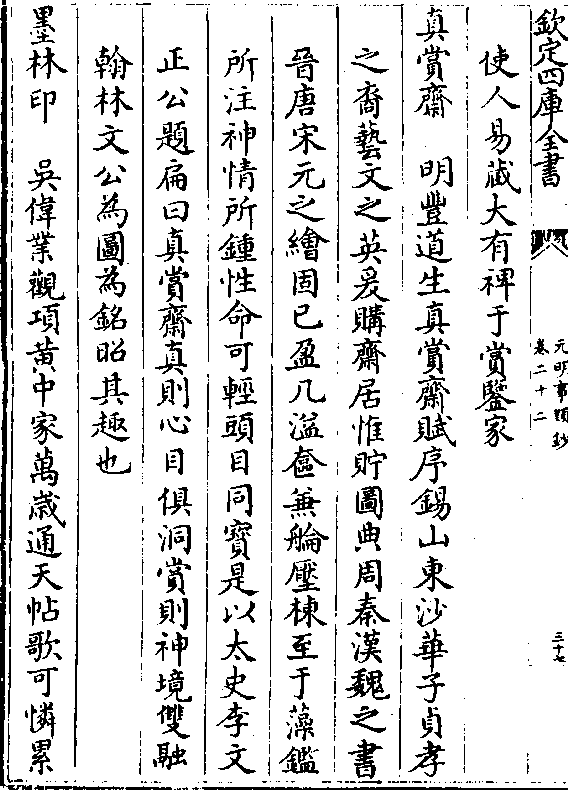 欽定四庫全書
元明事類鈔
卷二十二
三十七
使人易藏大有裨于賞鑒家
真賞齋　明豐道生真賞齋賦序錫山東沙華子貞孝
之裔藝文之英爰購齋居惟貯圖典周秦漢魏之書
晉唐宋元之繪固已盈几溢奩兼艑壓棟至于藻鑑
所注神情所鍾性命可輕頭目同寳是以太史李文
正公題扁曰真賞齋真則心目俱洞賞則神境雙融
翰林文公為圖為銘昭其趣也
墨林印　吳偉業觀項黄中家萬歲通天帖歌可憐累